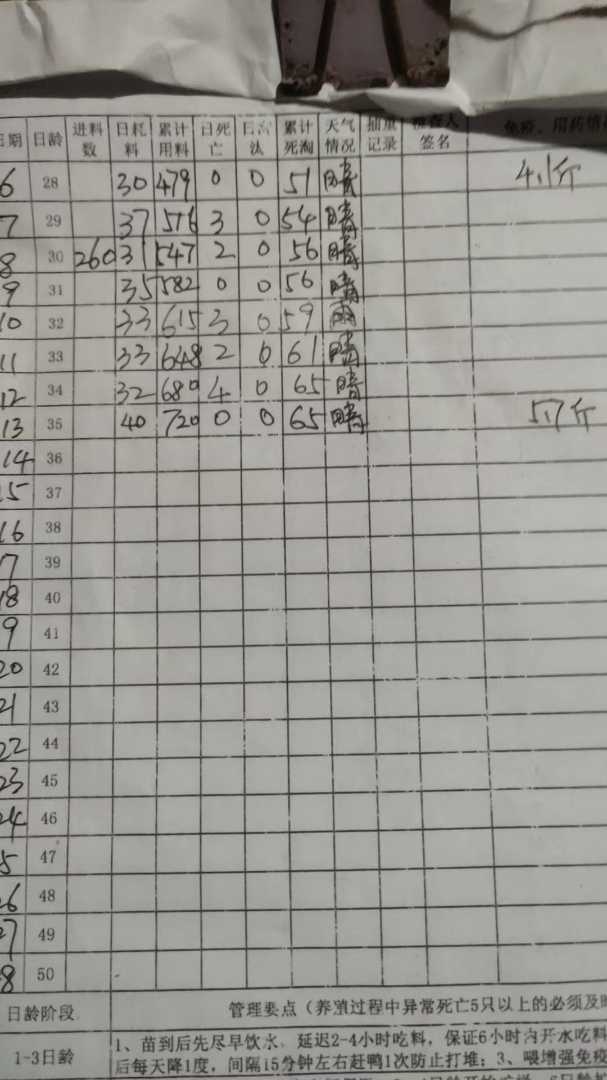 日期 日龄 进料数 日耗料 累计用料 日死亡 日淘汰 累计死淘 天气情况 抽重记录 检查人签名 免疫、用药情
6 28 30 479 0 0 51 晴 4.1斤
7 29 37 516 3 0 54 晴
8 30 260 31 547 2 0 56 晴
9 31 35 582 0 0 56 晴
10 32 33 615 3 0 59 雨
11 33 33 648 2 0 61 晴
12 34 32 680 4 0 65 晴
13 35 40 720 0 0 65 晴 5.7斤
14 36
15 37
16 38
17 39
18 40
19 41
20 42
21 43
22 44
23 45
24 46
25 47
26 48
27 49
28 50
日龄阶段 管理要点（养殖过程中异常死亡5只以上的必须及时
1-3日龄 1、苗到后先尽早饮水，延迟2-4小时吃料，保证6小时内开水吃料
后每天降1度，间隔15分钟左右赶鸭1次防止打堆；3、喂增强免疫